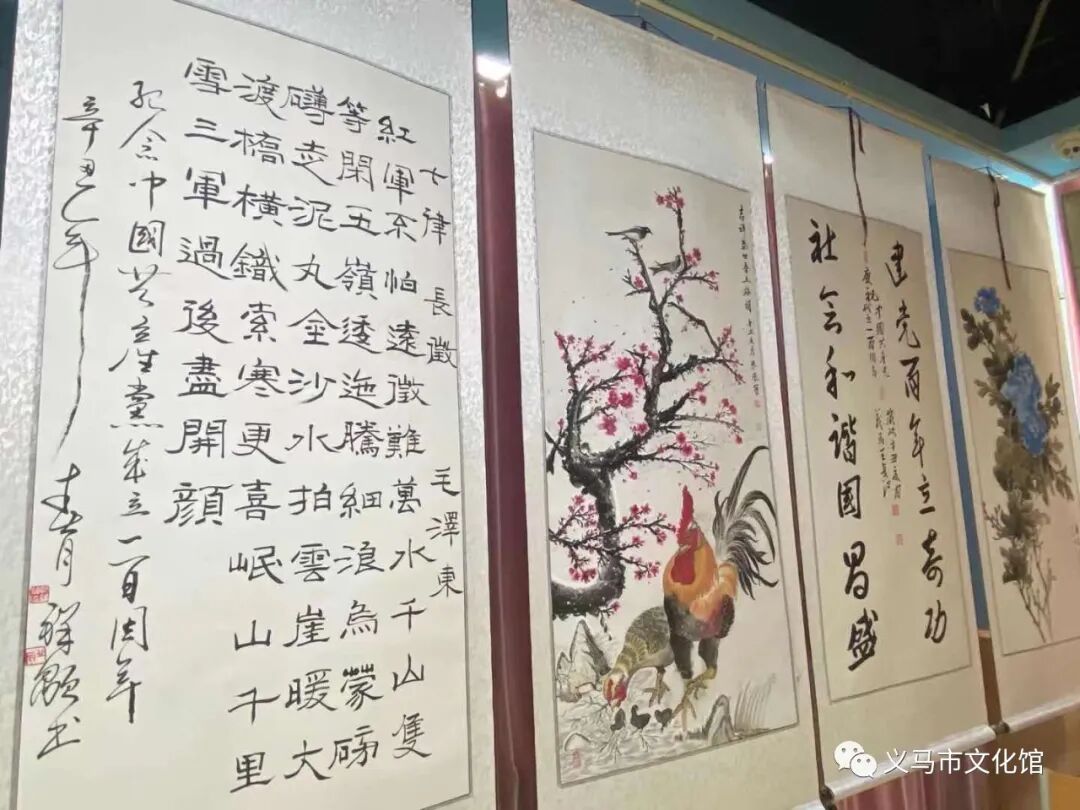 七律 長徵 毛澤東
紅軍不怕遠徵難萬水千山隻
等閑五嶺逶迤騰細浪烏蒙磅
礴走泥丸金沙水拍雲崖暖大
渡橋橫鐵索寒更喜岷山千里
雪三軍過後盡開顔
紀念中國共產黨成立一百周年
辛丑年
建党百年立奇功
庆祝中國共产党
成立一百周年
社会和谐國昌盛
义马市文化馆